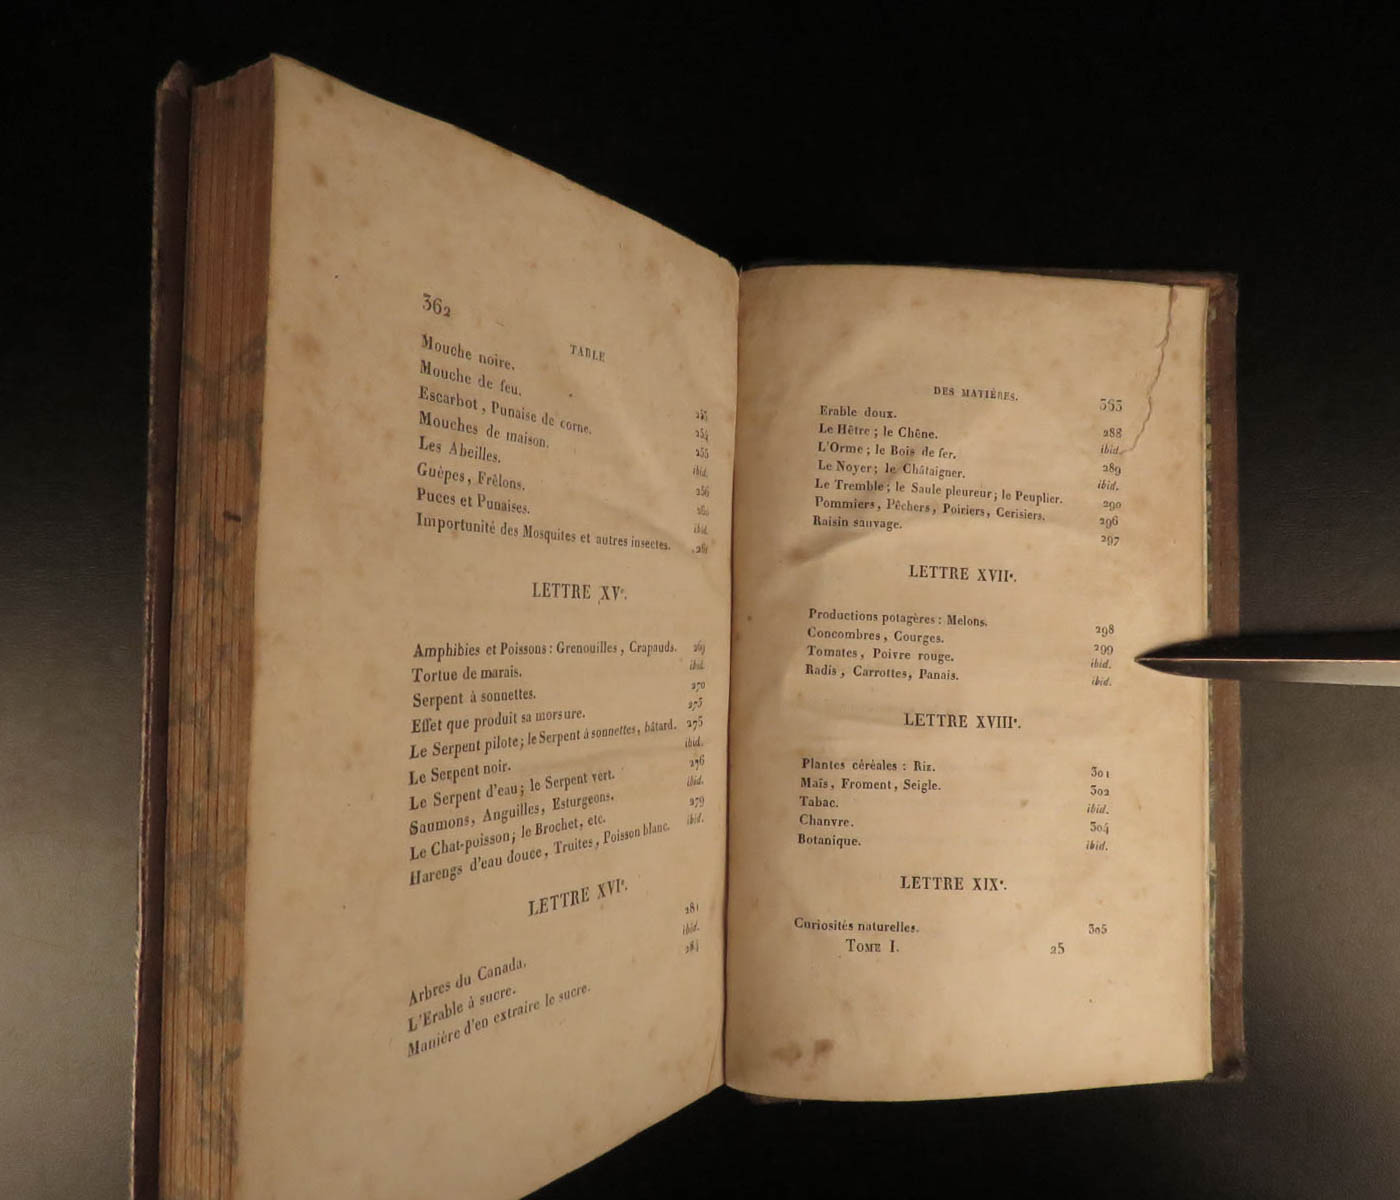 362
TABLE
Mouche noire. 253
Mouche de feu. 254
Escarbot, Punaise de corne. 255
Mouches de maison. ibid.
Les Abeilles. 256
Guèpes, Frêlons. 260
Puces et Punaises. ibid.
Importunité des Mosquites et autres insectes. 261
LETTRE XVe.
Amphibies et Poissons : Grenouilles, Crapauds. 269
Tortue de marais. ibid.
Serpent à sonnettes. 270
Effet que produit sa morsure. 273
Le Serpent pilote; le Serpent à sonnettes, bâtard. 275
Le Serpent noir. ibid.
Le Serpent d'eau; le Serpent vert. 276
Saumons, Anguilles, Esturgeons. ibid.
Le Chat-poisson; le Brochet, etc. 279
Harengs d'eau douce, Truites, Poisson blanc. ibid.
LETTRE XVIe.
Arbres du Canada. 281
L'Erable à sucre. ibid.
Manière d'en extraire le sucre. 284
DES MATIÈRES. 363
Erable doux. 288
Le Hêtre; le Chêne. ibid.
L'Orme; le Bois de fer. 289
Le Noyer; le Châtaigner. ibid.
Le Tremble; le Saule pleureur; le Peuplier. 290
Pommiers, Pêchers, Poiriers, Cerisiers. 296
Raisin sauvage. 297
LETTRE XVIIe.
Productions potagères : Melons. 298
Concombres, Courges. 299
Tomates, Poivre rouge. ibid.
Radis, Carrottes, Panais. ibid.
LETTRE XVIIIe.
Plantes céréales : Riz. 301
Maïs, Froment, Seigle. 302
Tabac. ibid.
Chanvre. 304
Botanique. ibid.
LETTRE XIXe.
Curiosités naturelles. 305
TOME I. 25